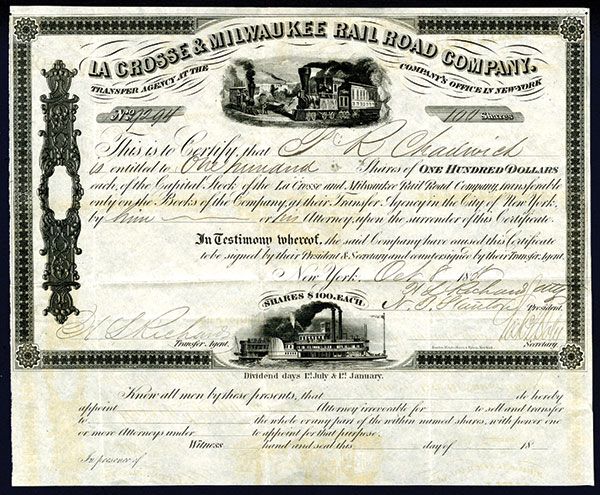 LA CROSSE & MILWAUKEE RAIL ROAD COMPANY.
TRANSFER AGENCY AT THE COMPANY'S OFFICE IN NEW-YORK
No. 7294 100 Shares
This is to Certify, that Chadwick
is entitled to One hundred Shares of ONE HUNDRED DOLLARS
each, of the Capital Stock of the La Crosse and Milwaukee Rail Road Company, transferable
only on the Books of the Company, at their Transfer Agency in the City of New York,
by him or his Attorney, upon the surrender of this Certificate.
In Testimony whereof, the said Company have caused this Certificate
to be signed by their President & Secretary and countersigned by their Transfer Agent.
New York. Oct 185
SHARES $100. EACH.
President.
Transfer Agent.
Secretary.
Dividend days 1st. July & 1st. January.
Know all men by these presents, that do hereby
appoint Attorney irrevocable for to sell and transfer
to the whole or any part of the within named shares, with power one
or more Attorneys under to appoint for that purpose.
Witness hand and seal this day of 18
In presence of